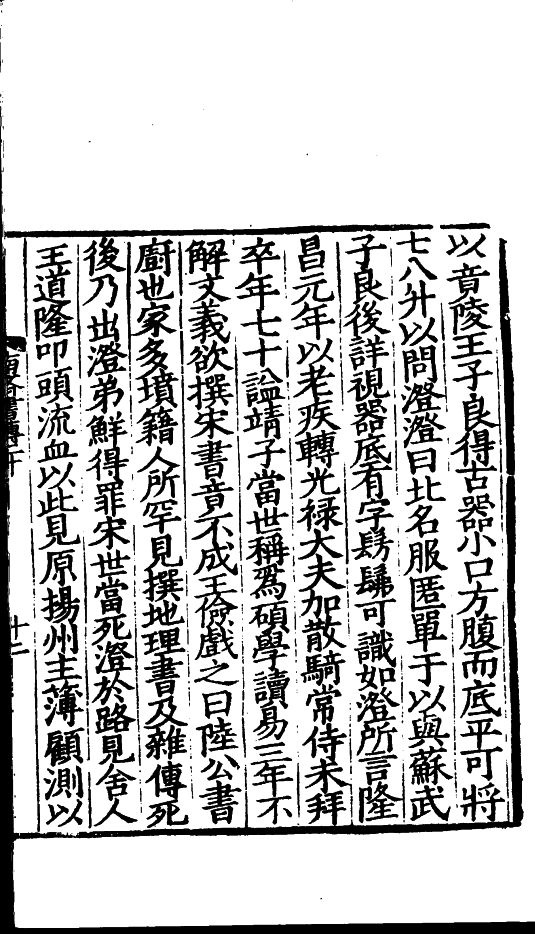 以音陵王子良得古器小口方腹而底平可將
七八升以問澄澄曰北名服匿單于以與蘇武
子良後詳視器底有字髣髴可識如澄所言隆
昌元年以老疾轉光禄大夫加散騎常侍未拜
卒年七十謚靖子當世稱爲碩學讀易三年不
解文義欲撰宋書竟不成王儉戲之曰陸公書
廚也家多墳籍人所罕見撰地理書及雜傳死
後乃出澄弟鮮得罪宋世當死澄於路見舍人
王道隆叩頭流血以此見原揚州主薄顧測以
十二